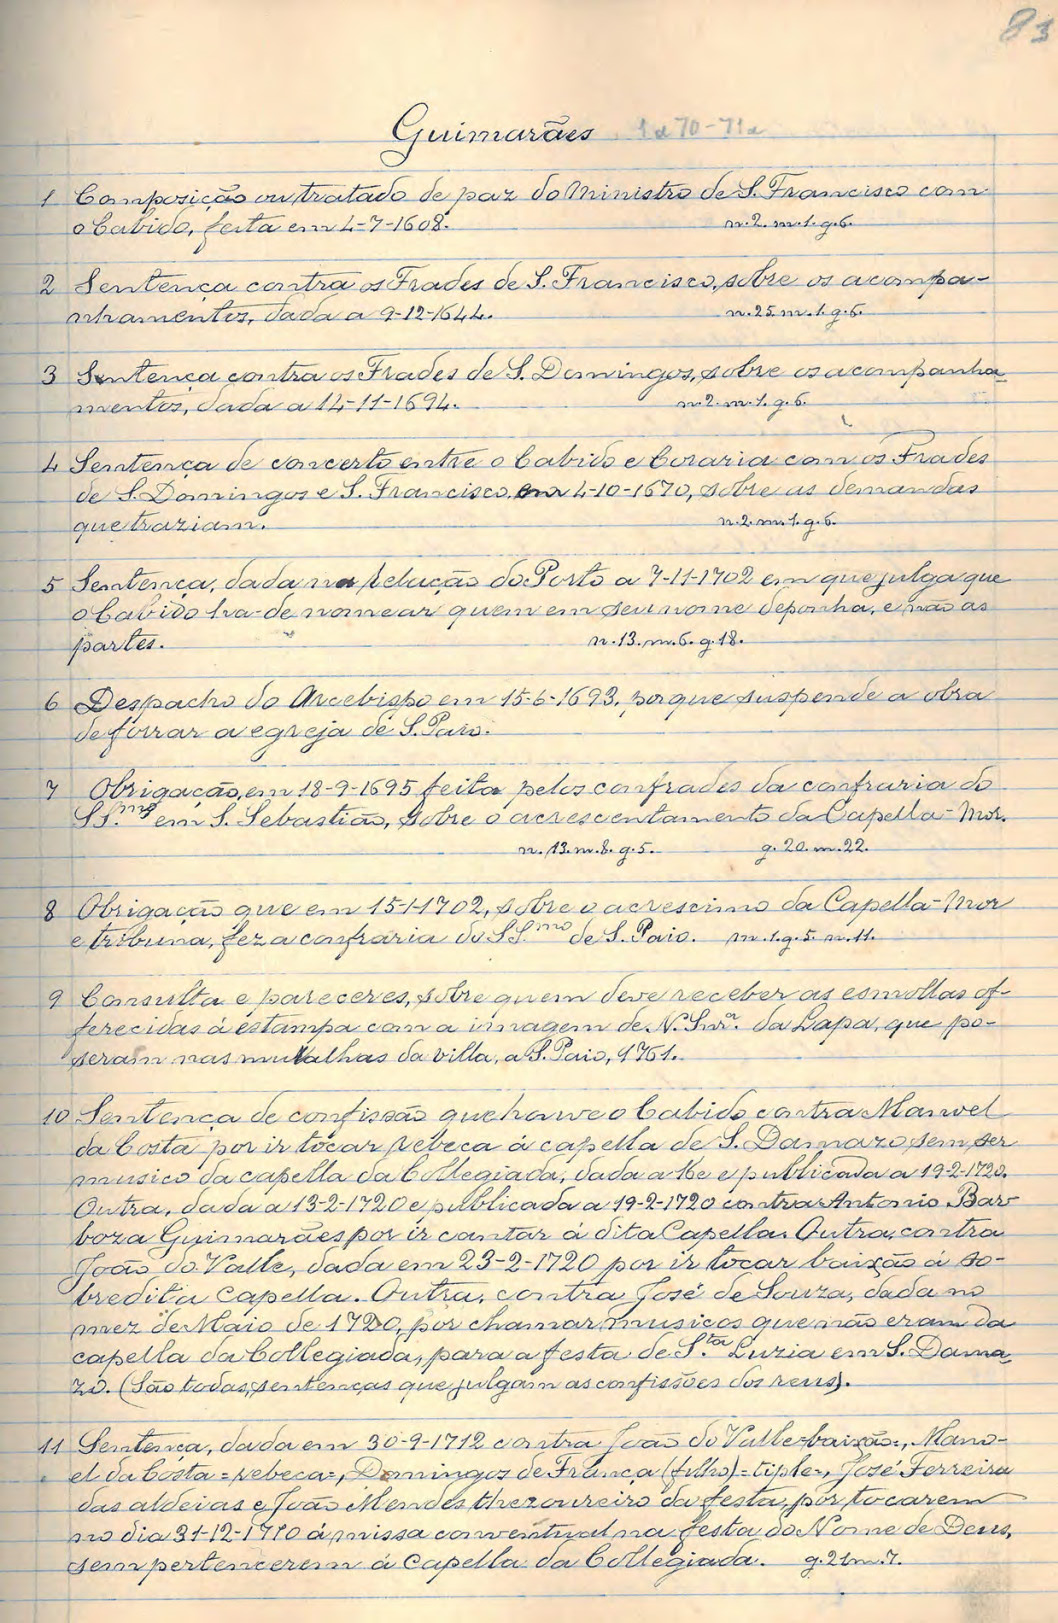 83
Guimarães 1 a 70-71a
1 Composição ou tratado de paz do Ministro de S. Francisco com
o Cabido, feita em 4-7-1608. n.2.m.1.g.6.
2 Sentença contra os Frades de S. Francisco, sobre os acompa-
nhamentos, dada a 9-12-1644. n.25.m.1.g.6.
3 Sentença contra os Frades de S. Domingos, sobre os acompanha-
mentos, dada a 14-11-1694. n.2.m.1.g.6.
4 Sentença de concerto entre o Cabido e Coraria com os Frades
de S. Domingos e S. Francisco, em 4-10-1670, sobre as demandas
que traziam. n.2.m.1.g.6.
5 Sentença, dada na Relação do Porto a 7-11-1702 em que julga que
o Cabido ha-de nomear quem em seu nome deponha, e não as
partes. n.13.m.6.g.18.
6 Despacho do Arcebispo em 15-6-1693, porque suspende a obra
de forrar a egreja de S. Paio.
7 Obrigação, em 18-9-1695 feita pelos confrades da confraria do
SS.mo em S. Sebastião, sobre o acrescentamento da Capella-Mor.
n.13.m.8.g.5. g.20.m.22.
8 Obrigação que em 15-1-1702, sobre o acrescimo da Capella-Mor
e tribuna, fez a confraria do SS.mo de S. Paio. m.1.g.5.n.11.
9 Consulta e pareceres, sobre quem deve receber as esmollas of-
ferecidas á estampa com a imagem de N. Snrª. da Lapa, que po-
seram nas muralhas da villa, a S. Paio, 1761.
10 Sentença de confissão que houve o Cabido contra Manoel
da Costa por ir tocar rebeca á capella de S. Damazo, sem ser
musico da capella da Collegiada, dada a 16 e publicada a 19-2-1720.
Outra, dada a 13-2-1720 e publicada a 19-2-1720 contra Antonio Bar
boza Guimarães por ir cantar á dita Capella. Outra, contra
João do Valle, dada em 23-2-1720 por ir tocar baixão á so-
bredita Capella. Outra, contra José de Souza, dada no
mez de Maio de 1720, por chamar musicos que não eram da
capella da Collegiada, para a festa de S.ta Luzia em S. Dama-
zo. (São todas, sentenças que julgam as confissões dos reus).
11 Sentença, dada em 30-9-1712 contra João do Valle=baixão=, Mano-
el da Costa=rebeca=, Domingos de França (filho)=tiple=, José Ferreira
das aldeias e João Mendes thezoureiro da festa, por tocarem
no dia 31-12-1710 á missa conventual na festa do Nome de Deus,
sem pertencerem á Capella da Collegiada. g.21m.7.